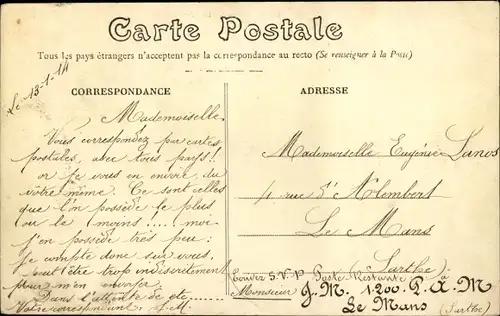 Carte Postale
Tous les pays étrangers n'acceptent pas la correspondance au recto (Se renseigner à la Poste)
Le 13-1-14
CORRESPONDANCE
Mademoiselle,
Vous correspondez par cartes
postales, avec tous pays!!
or je vous en envoie, du
vôtre même. Ce sont celles
que l'on possède le plus
ou le moins!.... moi
j'en possède très peu:
je compte donc sur vous,
être trop indiscrètement
pour m'en envoyer.
Dans l'attente de
Votre correspondant J.M.
ADRESSE
Mademoiselle Eugénie Lanos
4 rue d'Alembert
Le Mans
Sarthe
Ecrivez S.V.P. Poste Restante à
Monsieur J.M. 1200 P.A.M
Le Mans (Sarthe)